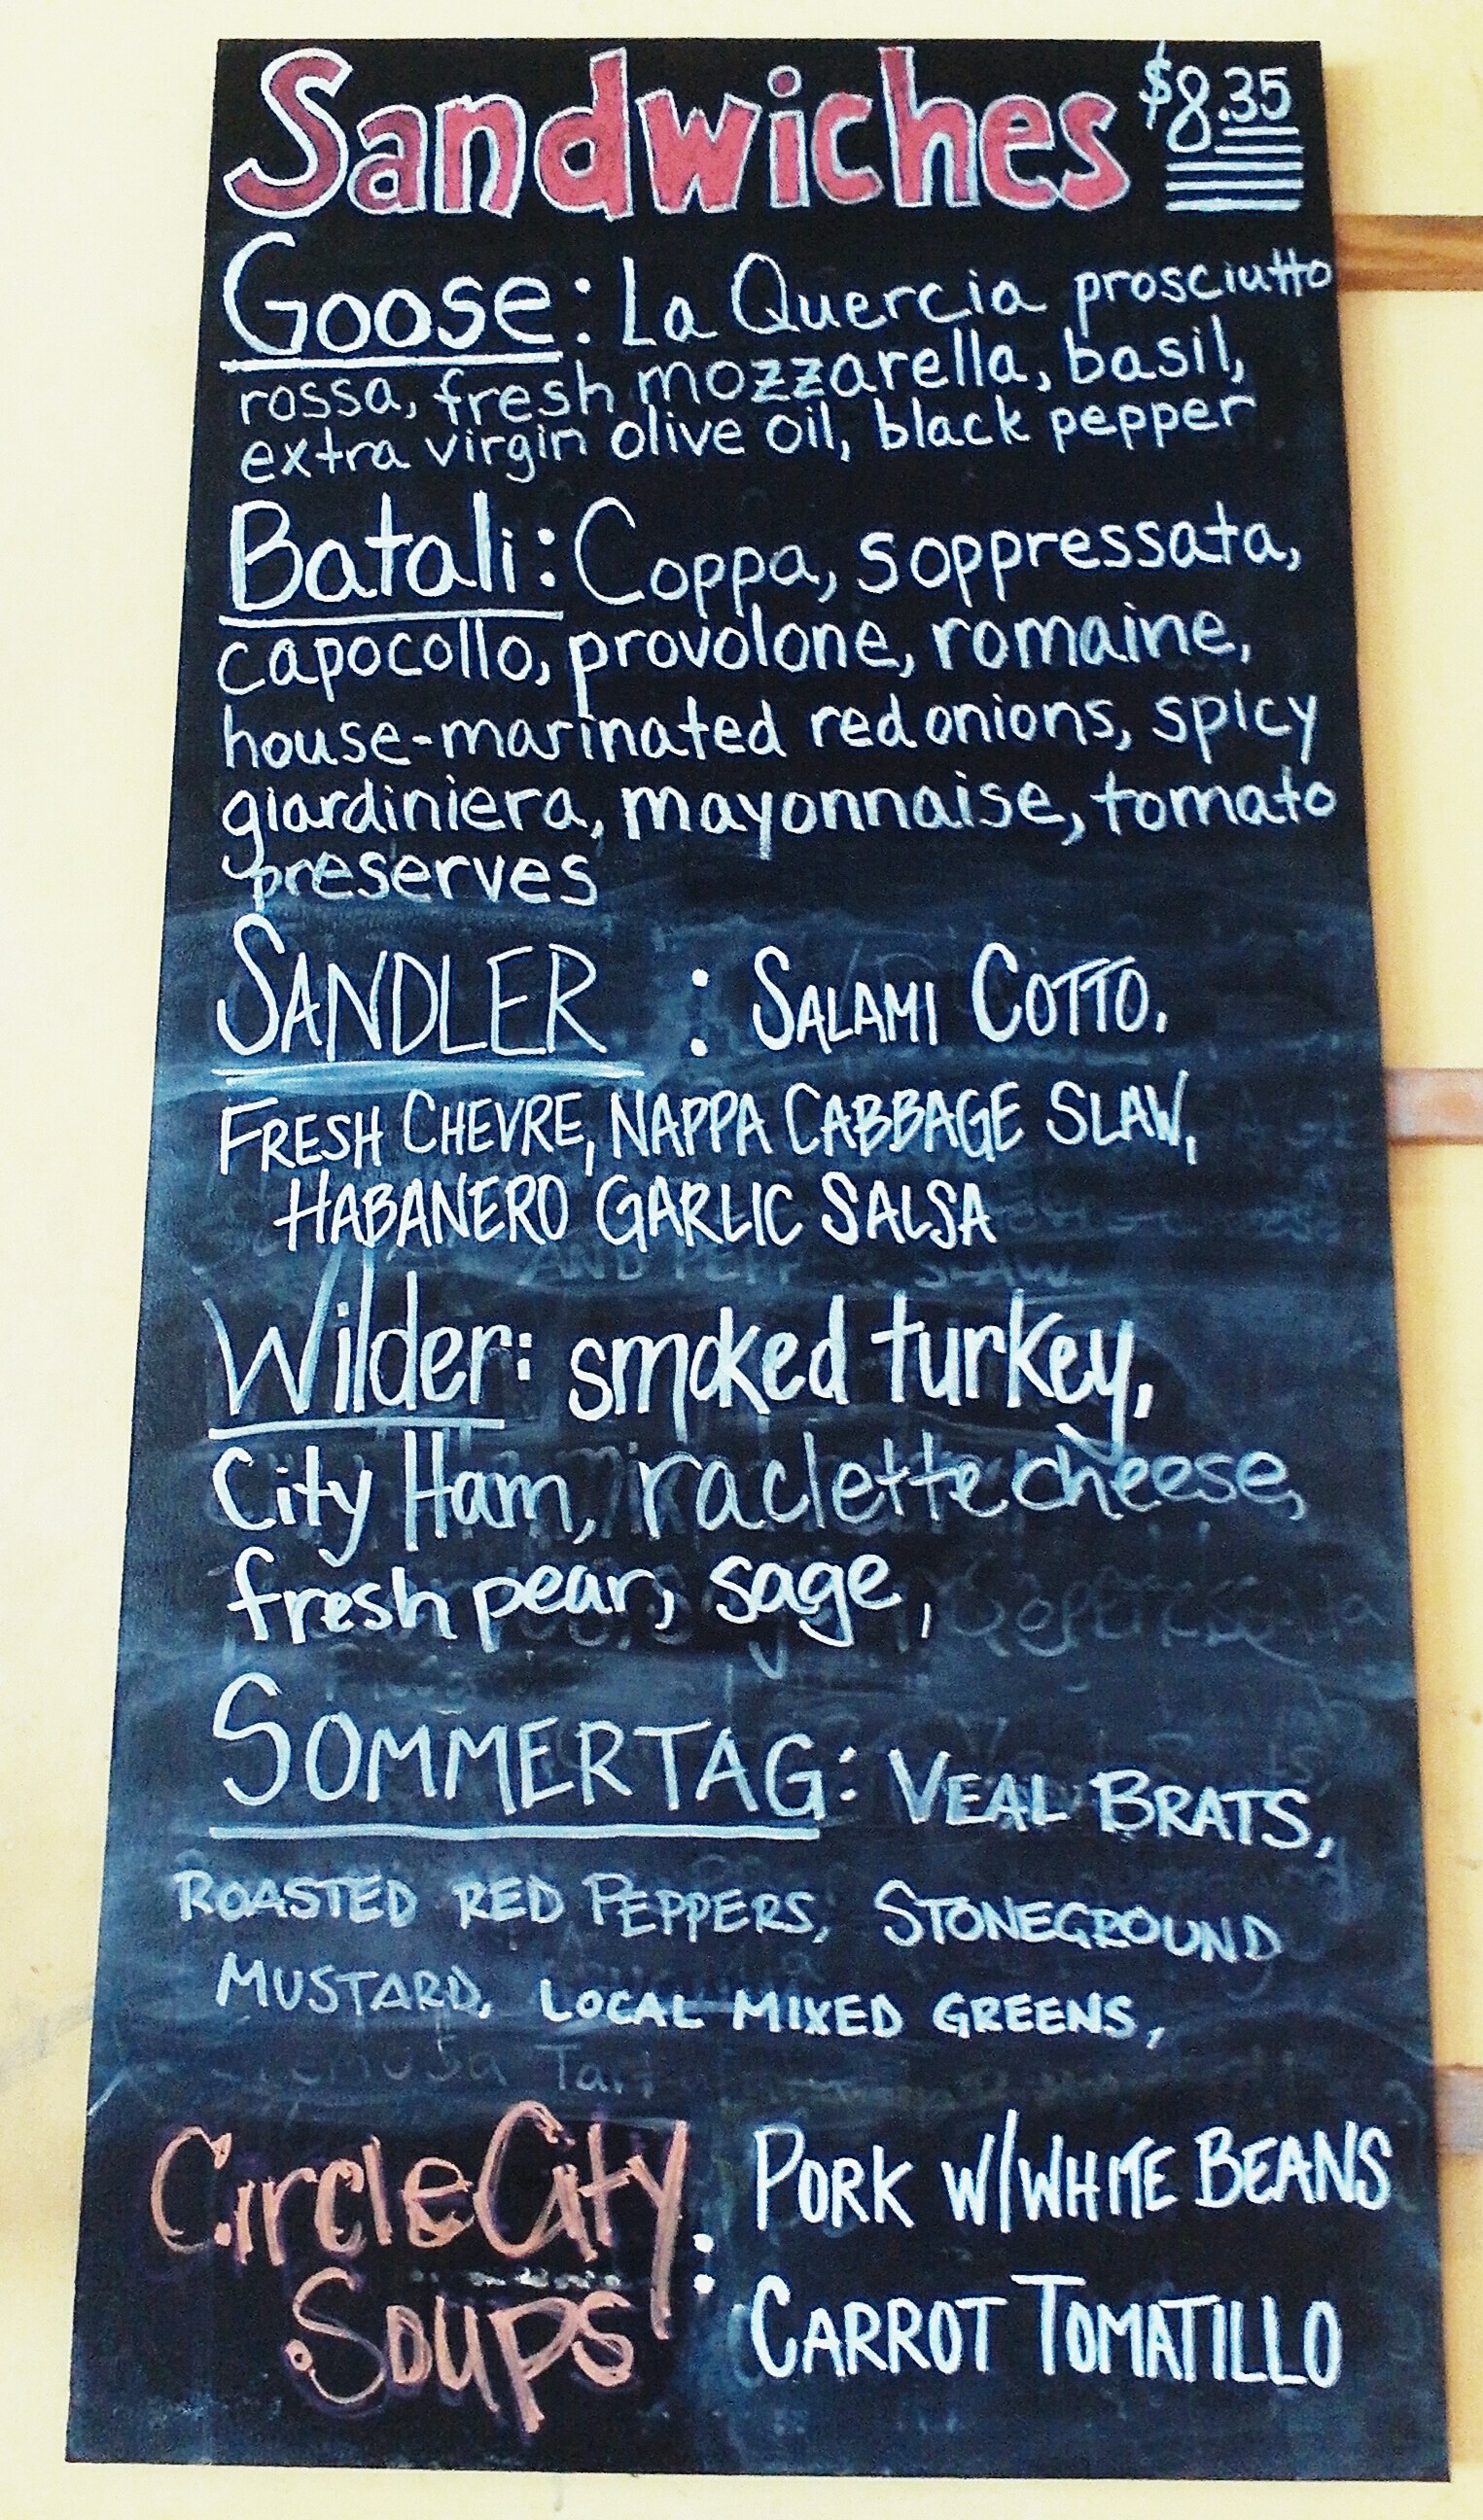 Sandwiches $8.35
Goose: La Quercia prosciutto
rossa, fresh mozzarella, basil,
extra virgin olive oil, black pepper
Batali: Coppa, soppressata,
capocollo, provolone, romaine,
house-marinated red onions, spicy
giardiniera, mayonnaise, tomato
preserves
SANDLER : SALAMI COTTO,
FRESH CHEVRE, NAPPA CABBAGE SLAW,
HABANERO GARLIC SALSA
Wilder: smoked turkey,
City Ham, raclette cheese,
fresh pear, sage,
SOMMERTAG: VEAL BRATS,
ROASTED RED PEPPERS, STONEGROUND
MUSTARD, LOCAL MIXED GREENS,
Circle City
Soups :
PORK W/WHITE BEANS
CARROT TOMATILLO